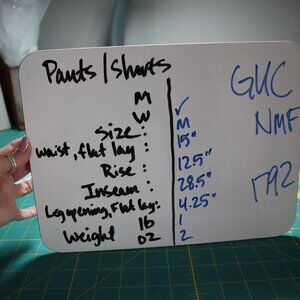 Pants/Shorts
M
W ✓
Size: M
waist, flat lay: 15"
Rise: 12.5"
Inseam: 28.5"
Leg opening, Flat lay: 4.25"
lb 1
Weight oz 2
GUC
NMF
1792